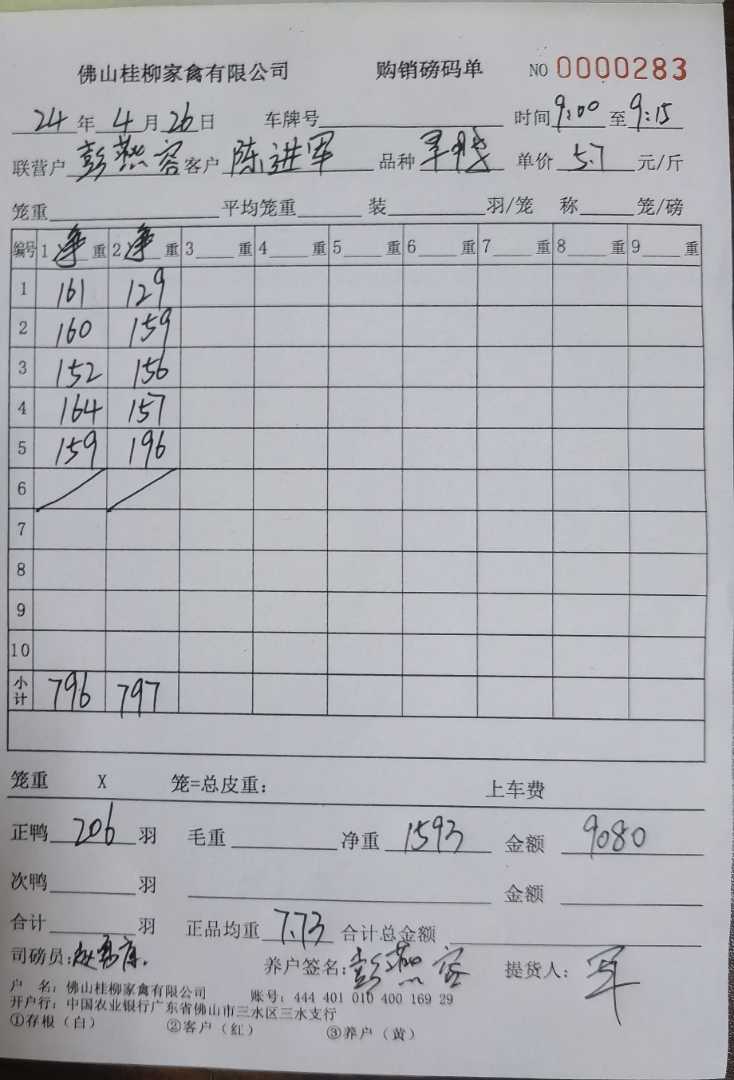 佛山桂柳家禽有限公司 购销磅码单 NO 0000283
24年4月26日 车牌号 时间9:00至9:15
联营户彭燕容客户陈进军 品种 单价5.7元/斤
笼重 平均笼重 装 羽/笼 称 笼/磅
编号 1净重 2净重 3 重 4 重 5 重 6 重 7 重 8 重 9 重
1 161 129
2 160 159
3 152 156
4 164 157
5 159 196
6
7
8
9
10
小计 796 797
笼重 X 笼=总皮重: 上车费
正鸭206羽 毛重 净重1593 金额9080
次鸭 羽 金额
合计 羽 正品均重7.73 合计总金额
司磅员: 养户签名:彭燕容 提货人:军
户 名: 佛山桂柳家禽有限公司 账号: 444 401 010 400 169 29
开户行: 中国农业银行广东省佛山市三水区三水支行
①存根(白) ②客户(红) ③养户(黄)